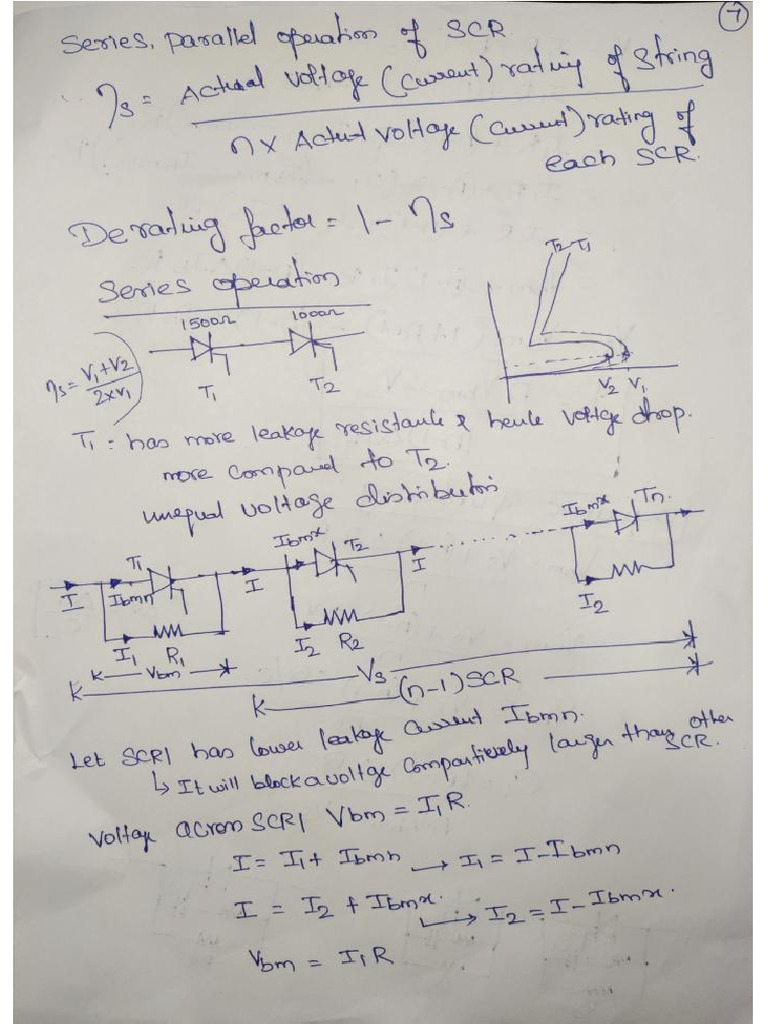 7
Series, parallel operation of SCR
ηs = Actual voltage (current) rating of string
n x Actual voltage (current) rating of
each SCR.
Derating factor = 1 - ηs
Series operation
T2 T1
1500Ω 1000Ω
ηs = V1+V2
2xV1
T1 T2
V2 V1
T1 : has more leakage resistance & hence voltage drop.
more compared to T2.
unequal voltage distribution
T1 Ibmx T2 Ibmx Tn.
I Ibmn I I
I1 R1 I2 R2 I2
Vbm Vs
(n-1) SCR
Let SCR1 has lower leakage current Ibmn.
↳ It will block a voltge compartively larger than other
SCR.
Voltage across SCR1 Vbm = I1R.
I = I1 + Ibmn → I1 = I - Ibmn
I = I2 + Ibmx. → I2 = I - Ibmx.
Vbm = I1R